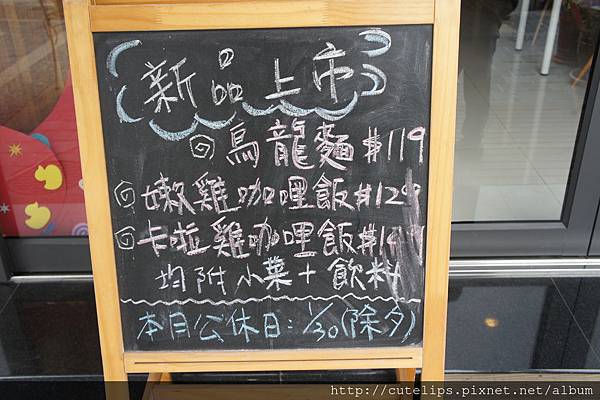 新品上市
烏龍麵 $119
嫩雞咖哩飯 $129
卡啦雞咖哩飯 $1
均附小菜+飲料
本月公休日:1/30(除夕)
http://cutelips.pixnet.net/album